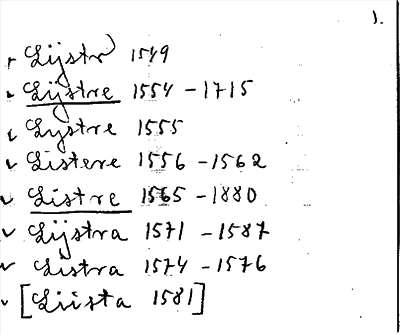 1.
Lijstr 1549
Lijstre 1554 - 1715
Lystre 1555
Listere 1556 - 1562
Listre 1565 - 1880
Lijstra 1571 - 1587
Listra 1574 - 1576
[Liista 1581]